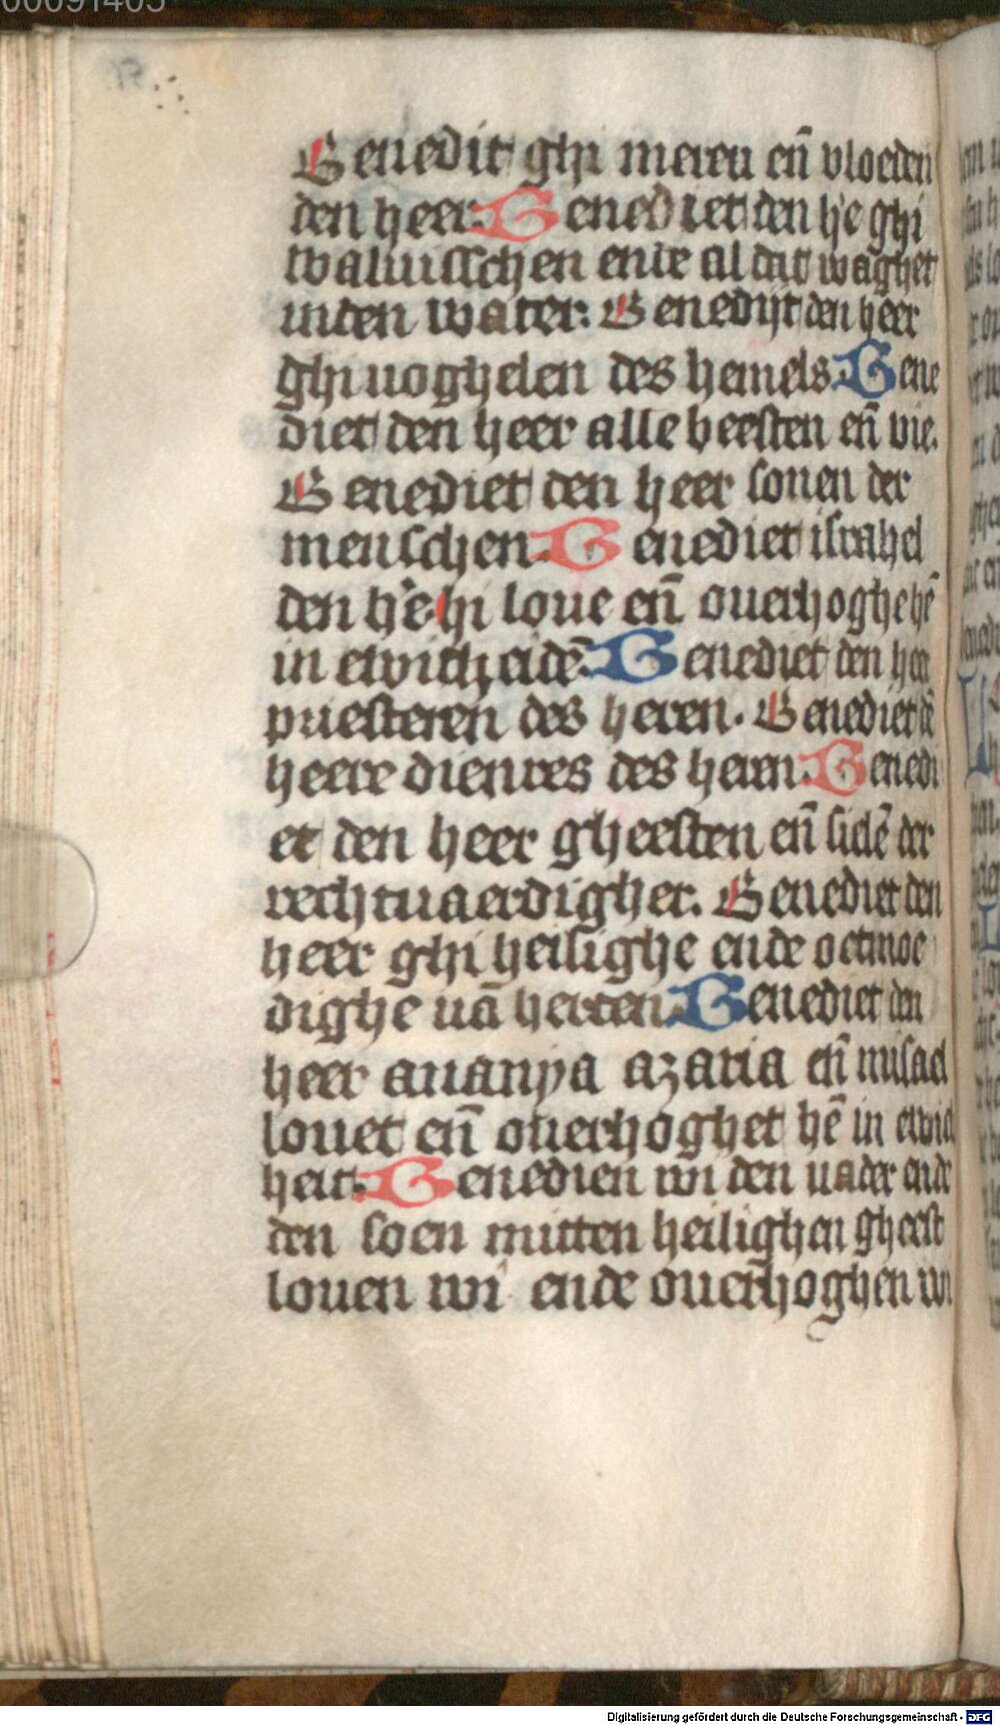 00091405
Benedit ghi meren en̄ vloeden
den heer. Benediet den h'e ghi
waluisschen ende al dat waghet
inden water: Benedijt den heer
ghi uoghelen des hemels. Bene
diet den heer alle beesten en̄ vie.
Benediet den heer sonen der
menschen. Benediet israhel
den h'e hi loue en̄ ouerhoghe hē
in ewicheidē. Benediet den heer
priesteren des heren. Benediet dē
heere dienres des heren. Benedi
et den heer gheesten en̄ sielē der
rechtuaerdigher. Benediet den
heer ghi heilighe ende oetmoe
dighe uā herten. Benediet den
heer ananya azaria en̄ misael
louet en̄ ouerhoghet hē in ewic
heit. Benedien wi den uader ende
den soen mitten heilighen gheest
louen wi ende ouerhoghen wi
Digitalisierung gefördert durch die Deutsche Forschungsgemeinschaft - DFG